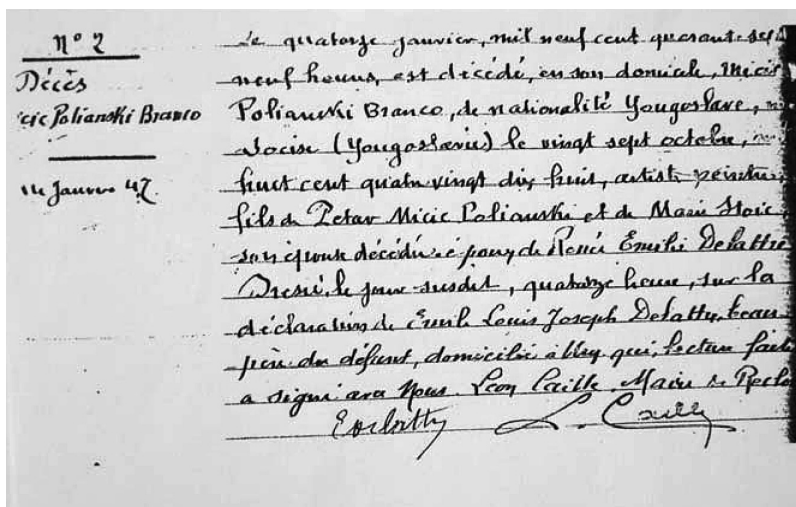 N° 2
Décès
cic Polianski Branco
14 Janvier 47.
Le quatorze janvier, mil neuf cent quarante-sept
neuf heures, est décédé, en son domicile, Micic
Polianski Branco, de nationalité Yougoslave, né
(Yougoslavie) le vingt sept octobre, mil
huit cent quatre vingt dix huit, artiste peintre,
fils de Petar Micic Polianski et de Marie Stoic,
son épouse décédée époux de Renée Emilie Delattre
Dressé le jour susdit, quatorze heures, sur la
déclaration de Emile Louis Joseph Delattre, beau
père du défunt, domicilié à qui, lecture faite
a signé avec Nous. Léon Caille, Maire de
E Delattre L. Caille